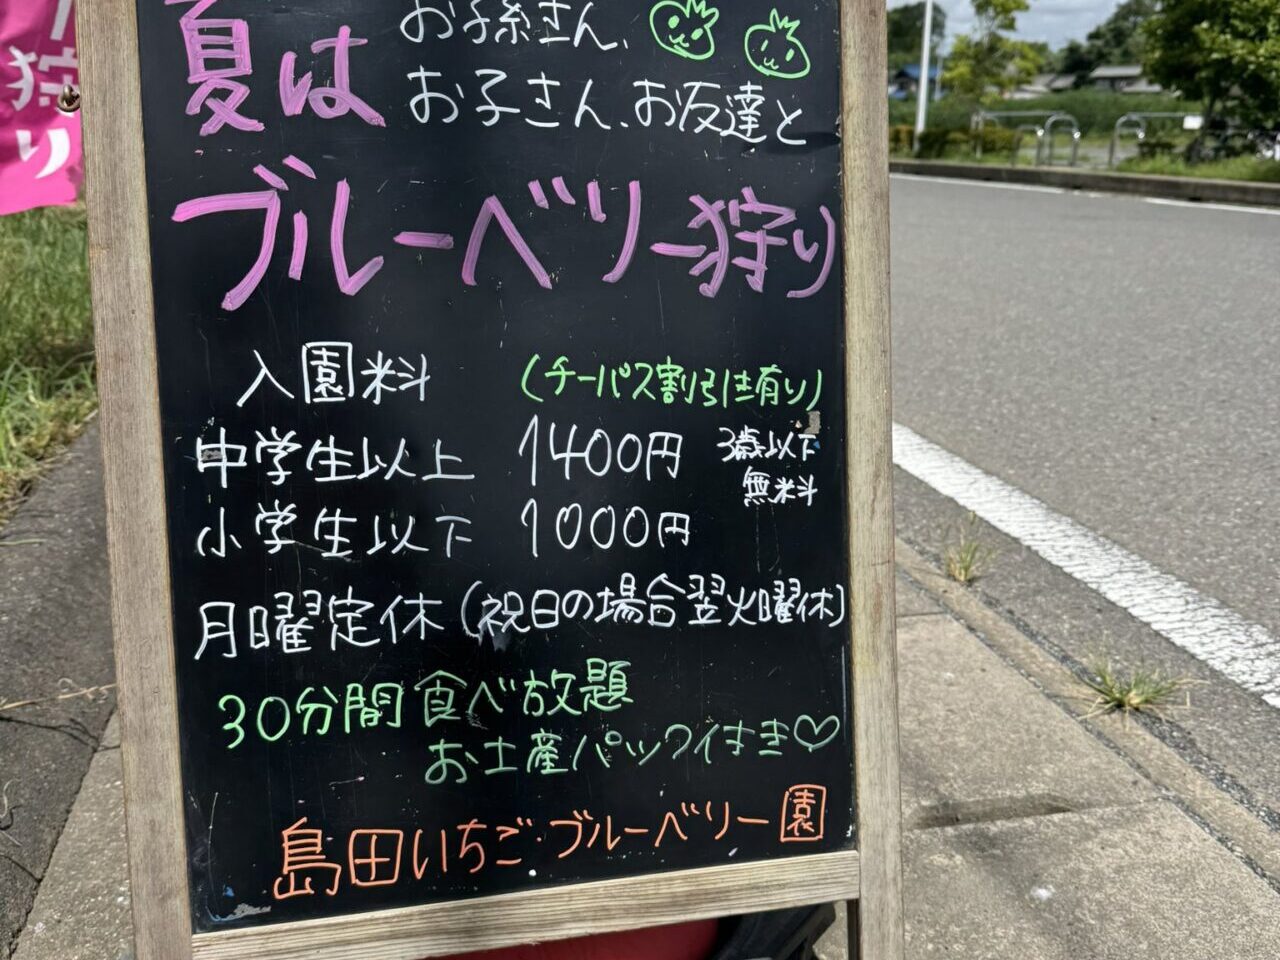 狩り
夏は
お子系さん、
お子さん、お友達と
ブルーベリー狩り
入園料 (チーパス割引は有り)
中学生以上 1400円 3歳以下
無料
小学生以下 1000円
月曜定休(祝日の場合翌火曜休)
30分間食べ放題
お土産パック付き♡
島田いちご・ブルーベリー園